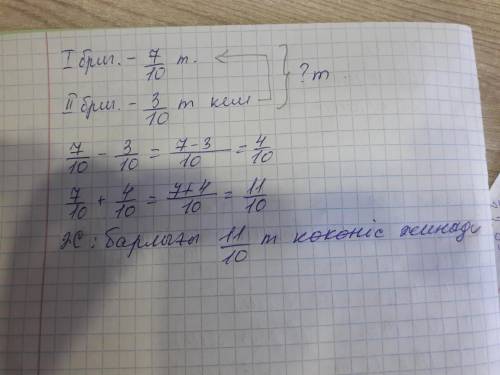 I бриг. – 7/10 т.
II бриг. – 3/10 т кем } ? т
7/10 – 3/10 = 7–3/10 = 4/10
7/10 + 4/10 = 7+4/10 = 11/10
Ж: барлығы 11/10 т көкөніс жинады